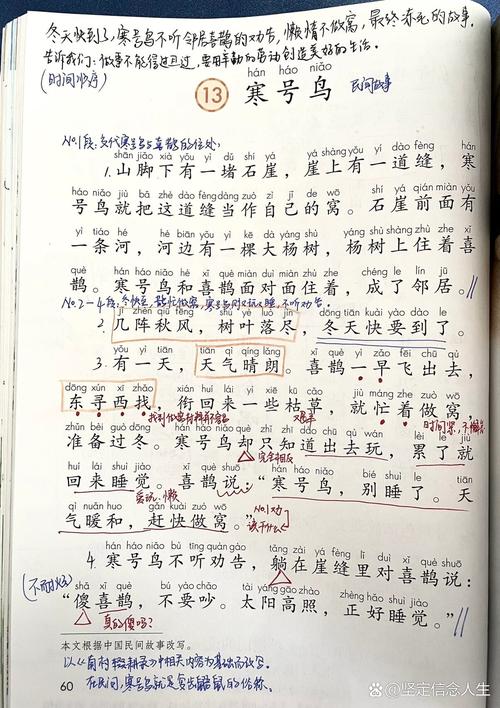 冬天快到了,寒号鸟不听邻居喜鹊的劝告,懒惰不做窝,最终冻死的故事,
告诉我们:做事不能得过且过,要用辛勤的劳动创造美好的生活。
(时间顺序)
hán háo niǎo
13 寒号鸟 民间故事
No.1段:交代寒号鸟与喜鹊的住处;
shān jiǎo xià yǒu yì dǔ shí yá yá shàng yǒu yí dào fèng hán
1.山脚下有一堵石崖,崖上有一道缝,寒
háo niǎo jiù bǎ zhè dào fèng dàng zuò zì jǐ de wō shí yá qián miàn yǒu
号鸟就把这道缝当作自己的窝。石崖前面有
yì tiáo hé hé biān yǒu yì kē dà yáng shù yáng shù shàng zhù zhe xǐ
一条河,河边有一棵大杨树,杨树上住着喜
què hán háo niǎo hé xǐ què miàn duì miàn zhù zhe chéng le lín jū
鹊。寒号鸟和喜鹊面对面住着,成了邻居。
No.2-4段:冬快至,喜鹊忙做窝,寒号鸟只玩及睡,不听劝告。
jǐ zhèn qiū fēng shù yè luò jìn dōng tiān kuài yào dào le
2.几阵秋风,树叶落尽,冬天快要到了。
yǒu yì tiān tiān qì qíng lǎng xǐ què yì zǎo fēi chū qù
3.有一天,天气晴朗。喜鹊一早飞出去,
dōng xún xī zhǎo xián huí lái yì xiē kū cǎo jiù máng zhe zuò wō
东寻西找,衔回来一些枯草,就忙着做窝,
zhǔn bèi guò dōng hán háo niǎo què zhǐ zhī dào chū qù wán lèi le jiù
准备过冬。寒号鸟却只知道出去玩,累了就
完全相反
huí lái shuì jiào xǐ què shuō hán háo niǎo bié shuì le tiān
回来睡觉。喜鹊说:“寒号鸟,别睡了。天
qì nuǎn huo gǎn kuài zuò wō
气暖和,赶快做窝。”
No.1劝
该干什么
hán háo niǎo bù tīng quàn gào tǎng zài yá fèng lǐ duì xǐ què shuō
4.寒号鸟不听劝告,躺在崖缝里对喜鹊说:
(不耐烦)
shǎ xǐ què bú yào chǎo tài yáng gāo zhào zhèng hǎo shuì jiào
“傻喜鹊,不要吵。太阳高照,正好睡觉。”
真的傻吗?
本文根据中国民间故事改写。
在民间,寒号鸟就是复齿鼯鼠的俗称。
60
@坚定信念人生